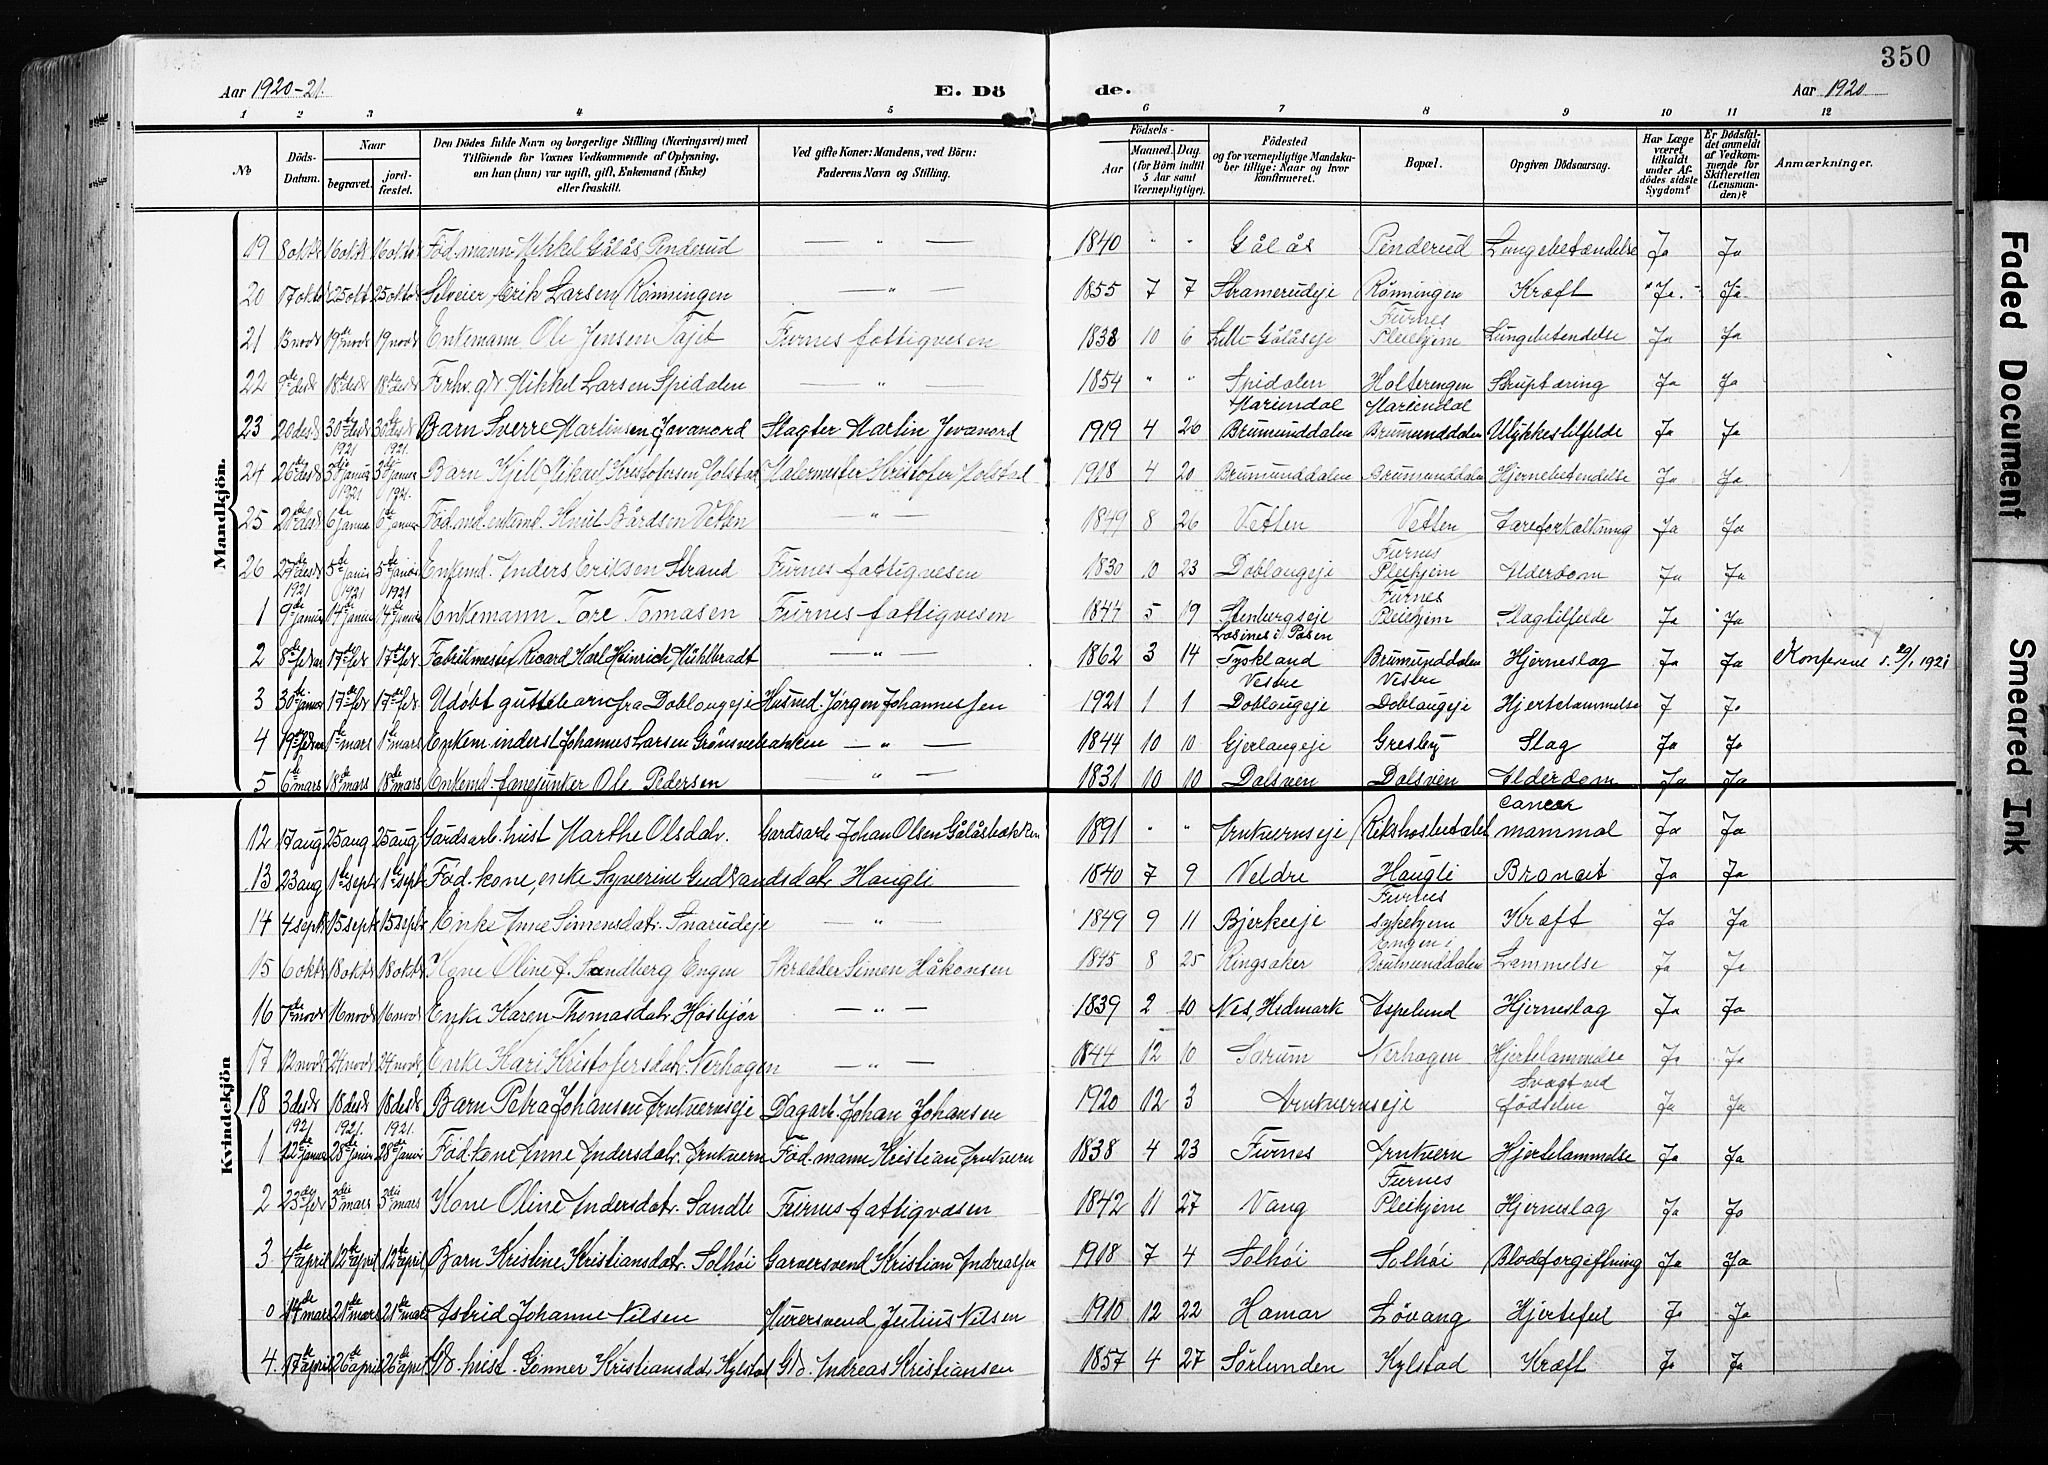 350
Aar 1920-21. E. Dö de. Aar 1920
1 2 3 4 5 6 7 8 9 10 11 12
No Döds-Datum. Naar begravet. jord-fæstet. Den Dödes fulde Navn og borgerlige Stilling (Næringsvei) med Tilföiende for Voxnes Vedkommende af Oplysning, om han (hun) var ugift, gift, Enkemand (Enke) eller fraskilt. Ved gifte Koner: Mandens, ved Börn: Faderens Navn og Stilling. Födsels- Aar Maaned. Dag. (for Börn indtil 5 Aar samt Værnepligtige). Födested og for værnepligtige Mandskaber tillige: Naar og hvor konfirmeret. Bopæl. Opgiven Dödsaarsag. Har Læge været tilkaldt under Afdödes sidste Sygdom? Er Dödsfaldet anmeldt af Vedkommende for Skifteretten (Lensmanden)? Anmærkninger.
Mandkjön.
19 8 oktr 16 oktr 16 oktr Föd.mann Mikkel Gålås Penderud — " — 1840 " " Gålås Penderud Lungebetændelse Ja Ja
20 17 oktr 25 okt 25 oktr Selveier Erik Larsen Rönningen — " — 1855 7 7 Stramerudeje Rönningen Kræft Ja. Ja
21 13 novr 19de novr 19 novr Enkemann Ole Jensen Furnes fattigvesen 1838 10 6 Lille-Gålåseje Furnes Pleiehjem Lungebetendelse Ja Ja
22 9de desr 18de desr 18de desr Forhv. gdr Mikkel Larsen Spidalen — " — 1854 " " Spidalen Holterengen Struptæring Ja Ja
23 20 desr 30te desr 30te desr Barn Sverre Martinsen Jevanord Slagter Martin Jevanord 1919 4 26 Mariendal Brumunddalen Mariendal Brumunddalen Ulykkestilfelde Ja Ja
24 26de desr 1921 3die januar 1921 3die januar Barn Kjell Mikael Kristofersen Molstad Malermester Kristofer Molstad 1918 4 20 Brumunddalen Brumunddalen Hjernebetendelse Ja Ja
25 desr 1921 6 januar 1921 6te januar Föd.md. enkemd. Knut Bårdsen Vetten — " — 1849 8 26 Vetten Vetten Ja Ja
26 27de desr 5te januar 5te januar Enkemd. Anders Eriksen Strand Furnes fattigvesen 1830 10 23 Doblaugeje Furnes Pleiehjem Elderdom Ja Ja
1 1921 9de januar 1921 14de januar 1921 14de januar Enkemann Tore Tomasen Furnes fattigvesen 1844 5 19 Stenbergseje Furnes Pleiehjem Slagtilfelde Ja Ja
2 8de febr 17de febr 17de febr Fabrikmester Ricard Karl Heinrich Mühlbradt — " — 1862 3 14 Losines i Posen Tyskland Brumunddalen Hjerneslag Ja Ja
3 30te januar 17de febr 17de febr Udöbt guttebarn fra Doblougeje Husmd. Jørgen Johannessen 1921 1 1 Vestre Doblougeje Vestre Doblougeje Hjertelammelse Ja Ja
4 19de febr 1ste mars 1ste mars Enkem. inderst Johannes Larsen Grönsvebakken — " — 1844 10 10 Gjerlaugeje Gresby Slag Ja Ja
5 6te mars 18de mars 18de mars Enkemd. fanejunker Ole Pedersen — " — 1831 10 10 Dolsven Dolsven Elderdom Ja Ja
Kvindekjön
12 17 aug 25 aug 25 aug Gårdsarb. hust Marthe Olsdatr. Gardsarb Johan Olsen Gålåsbækken 1891 " " Arnkverneje Rikshospitalet Cancer mammal Ja Ja
13 23 aug 1ste sept 1ste sept Föd.kone, enke Syverine Gudbrandsdatr Haugli 1840 7 9 Veldre Haugli Bronkit Ja Ja
14 4 septr 15 septr 15 septr Enke Anne Simensdatr. Snarudeje — " — 1849 9 11 Bjerkeeje Furnes sykehjem Kræft Ja Ja
15 6 oktr 18 oktr 18 oktr Kone Oline f. Sandberg Engen Skrædder Simen Håkonsen 1845 8 25 Ringsaker Engen i Brumunddalen Lammelse Ja Ja
16 7de novr 16 novr 16 novr Enke Karen Thomasdatr. Hösbjör — " — 1839 2 10 Nes, Hedmark Espelund Hjerneslag Ja Ja
17 12 novr 24 novr 24 novr Enke Kari Kristofersdatr. Nerhagen — " — 1844 12 10 Sørum Nerhagen Hjertelammelse Ja Ja
18 3 desr 18 desr 18 desr Barn Petra Johansen Arnkverneje Dagarb. Johan Johansen 1920 12 3 Arnkverneje Svagt ved födselen Ja Ja
1 1921 12te januar 1921. 28de januar 1921. 28de januar Föd.kone Anne Andersdatr. Arnkvern Föd.mann Kristian Arnkvern 1838 4 23 Furnes Arnkvern Hjertelammelse Ja Ja
2 23de febr 3die mars 3die mars Kone Oline Andersdatr. Sandli Furnes fattigvæsen 1842 11 27 Vang Furnes Pleiehjem Hjerneslag Ja Ja
3 4de april 12te april 12te april Barn Kristine Kristiansdatr. Solhöi Garversvend Kristian Andreassen 1918 7 4 Solhöi Solhöi Blodforgiftning Ja Ja
0 14de mars 21de mars 21de mars Astrid Johanne Nilsen Murersvend Julius Nilsen 1910 12 22 Hamar Lövang Hjertefeil Ja Ja
4. 17de april 26de april 26de april Gdr. hust. Gönner Kristiansdatr Kylstad Gdr. Andreas Kristiansen 1857 4 27 Sörlunden Kylstad Kræft Ja Ja
Faded Document
Smeared Ink